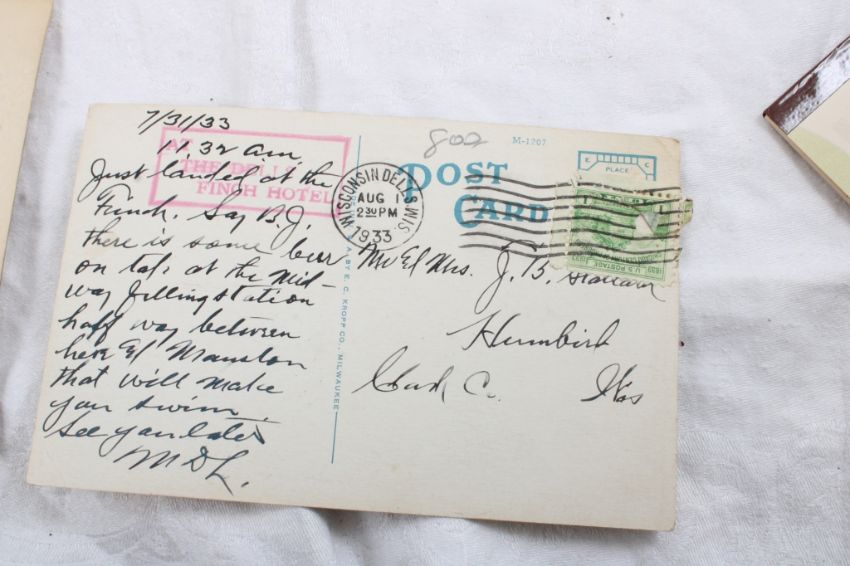 7/31/33
11.32 am,
AT
THE DELLS
FINCH HOTEL
Just landed at the
Finch. Say B.J.
there is some beer
on tap at the Mid-
way filling station
half way between
here & Mauston
that will make
you swim.
See you later
M D L.
A. BY E. C. KROPP CO., MILWAUKEE
802
M-1207
POST
CARD
PLACE
WISCONSIN DELLS, WIS.
AUG 1
2 30 PM
1933
U.S. POSTAGE
1833
1933
Mr & Mrs. J. B.
Humbird
Clark Co. Wis